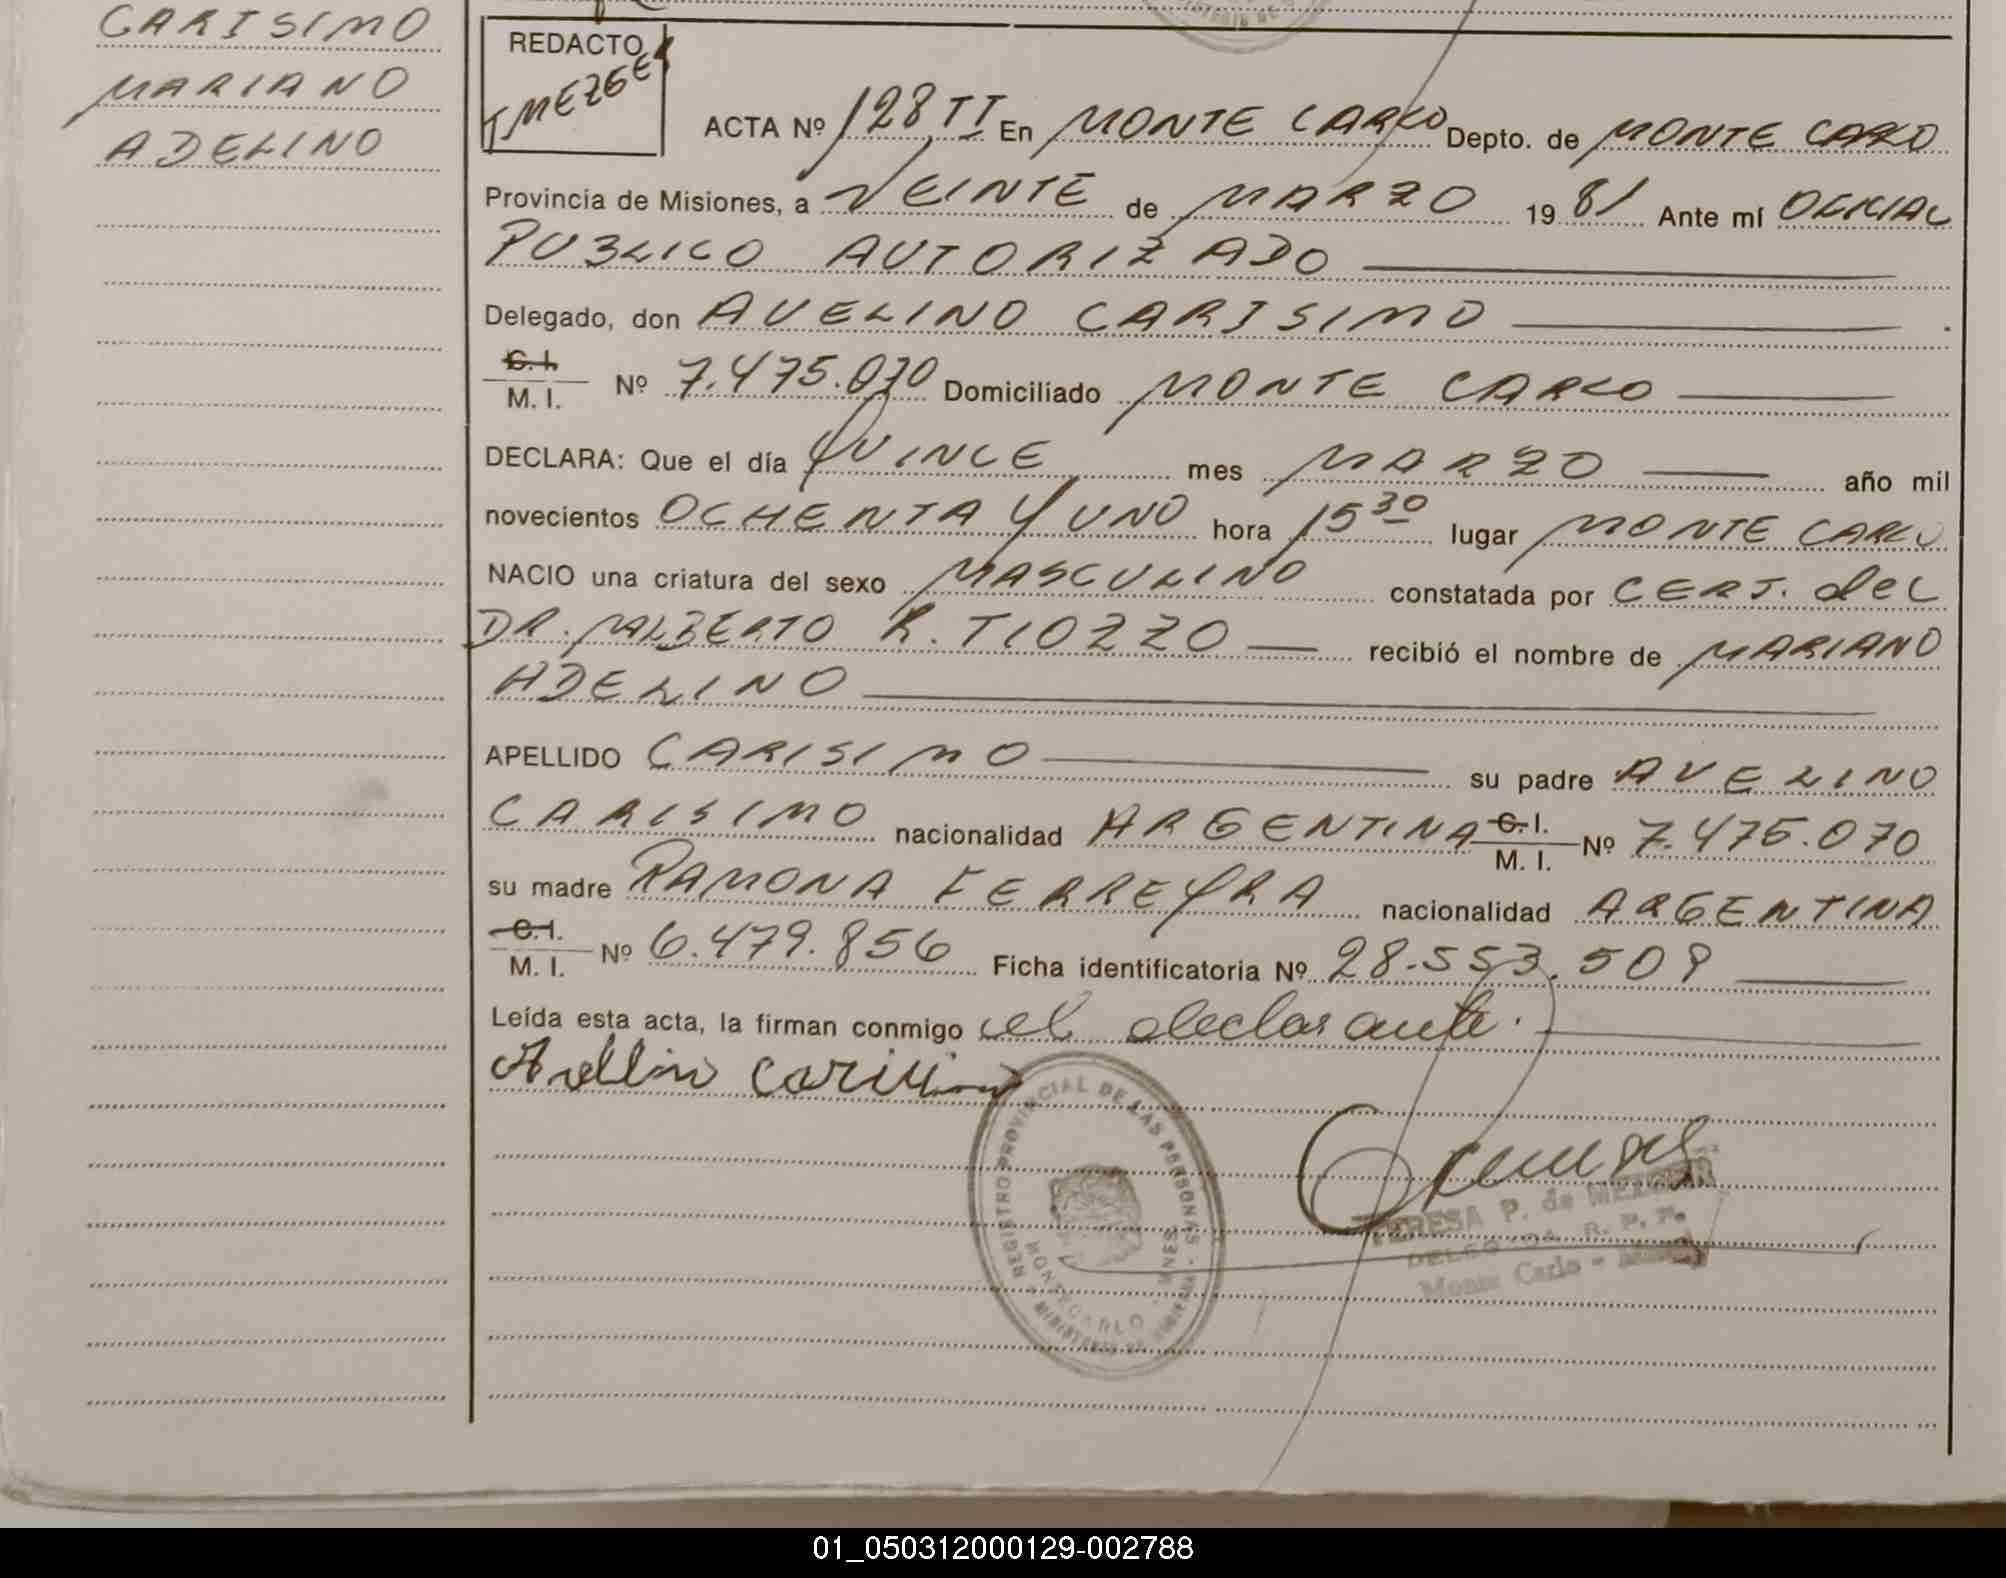 CARISIMO
MARIANO
ADELINO
REDACTO
T MEZGER
ACTA Nº 128 TI En MONTE CARLO Depto. de MONTE CARLO
Provincia de Misiones, a VEINTE de MARZO 1981 Ante mí OFICIAL
PUBLICO AUTORIZADO
Delegado, don AVELINO CARISIMO
C. I.
M. I. Nº 7.475.070 Domiciliado MONTE CARLO
DECLARA: Que el día QUINCE mes MARZO año mil
novecientos OCHENTA Y UNO hora 15 30 lugar MONTE CARLO
NACIO una criatura del sexo MASCULINO constatada por CERT. del
DR. ALBERTO R. TIOZZO recibió el nombre de MARIANO
ADELINO
APELLIDO CARISIMO su padre AVELINO
CARISIMO nacionalidad ARGENTINA C. I. M. I. Nº 7.475.070
su madre RAMONA FERREYRA nacionalidad ARGENTINA
C. I.
M. I. Nº 6.479.856 Ficha identificatoria Nº 28.553.509
Leída esta acta, la firman conmigo el declarante.
REGISTRO PROVINCIAL DE LAS PERSONAS - MINISTERIO DE GOBIERNO
MONTECARLO - MNES
TERESA P. de MEZGER
DELEGADA R. P. P.
Monte Carlo - Mnes
01_050312000129-002788